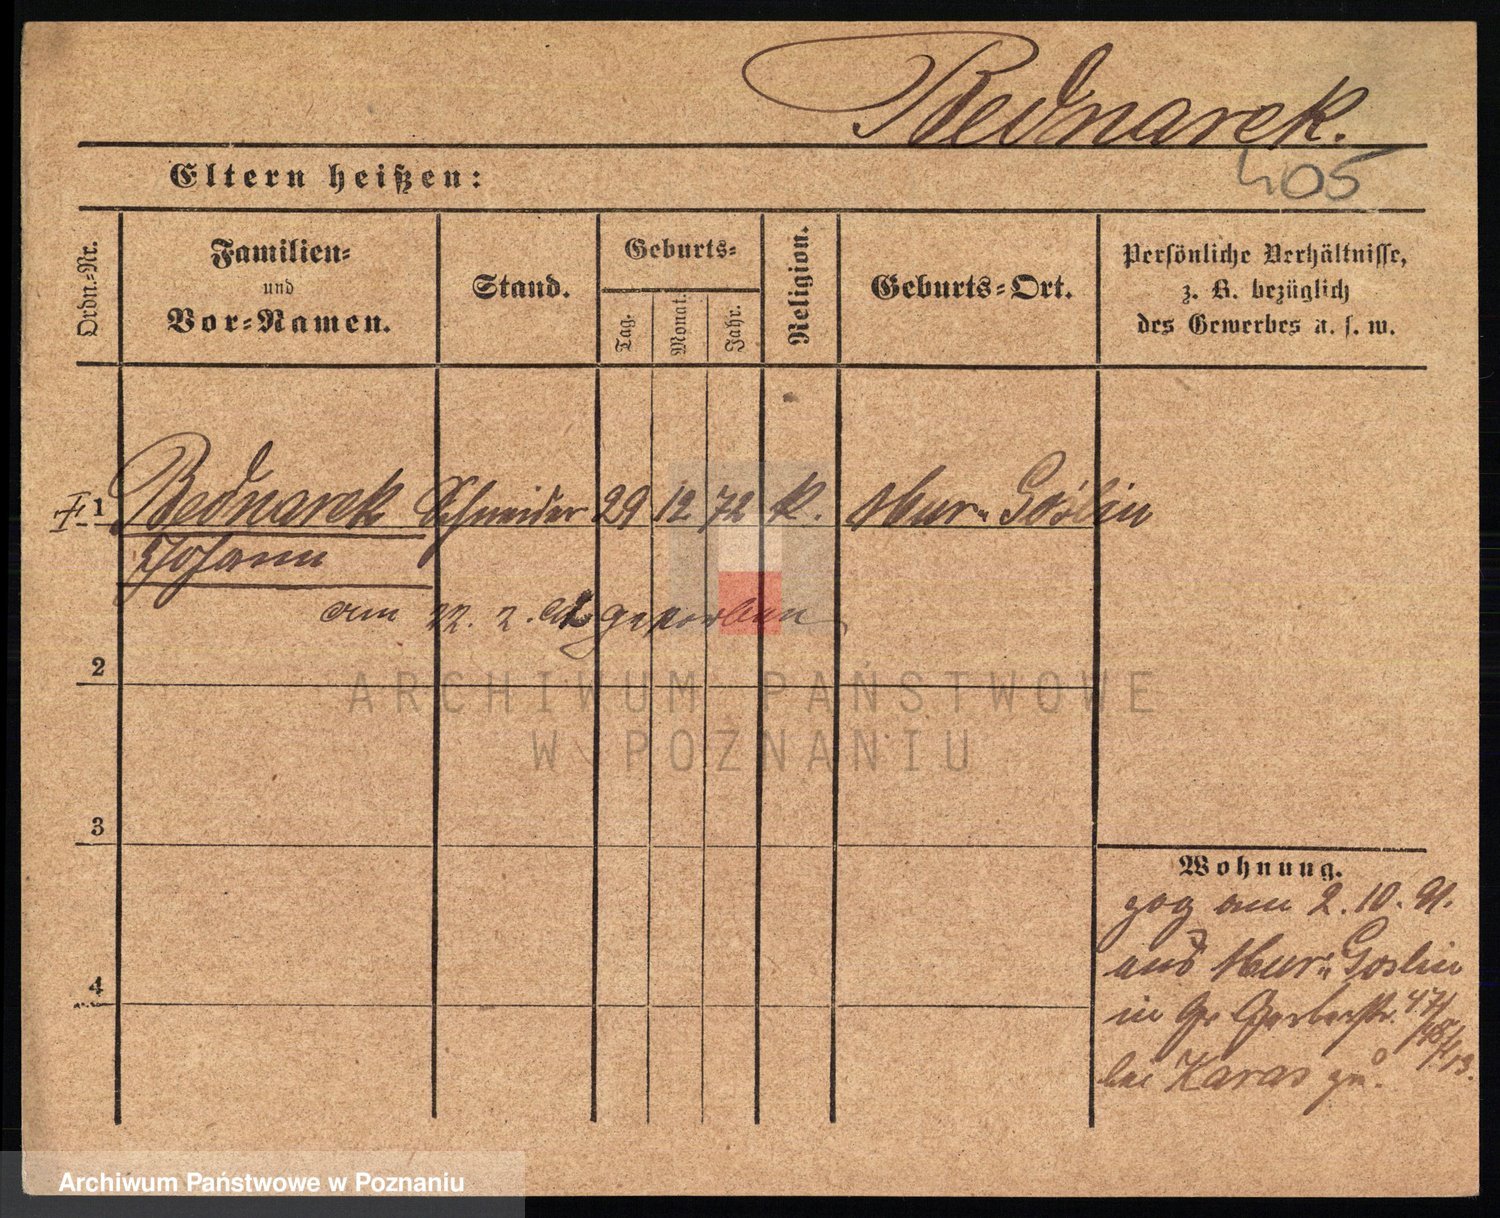 Bednarek.
405
Eltern heißen:
Ordn.-Nr.
Familien-
und
Vor-Namen.
Stand.
Geburts-
Tag.
Monat.
Jahr.
Religion.
Geburts-Ort.
Persönliche Verhältnisse,
z. B. bezüglich
des Gewerbes u. s. w.
1 Bednarek Schneider 29 12 72 k. Mur. Goslin
Johann
am 22. 2. gestorben
2
3
4
Wohnung.
zog am 2. 10. 91.
aus Mur. Goslin
in Gr Gerberstr. 47/
bei Karas zu.
ARCHIWUM PAŃSTWOWE
W POZNANIU
Archiwum Państwowe w Poznaniu